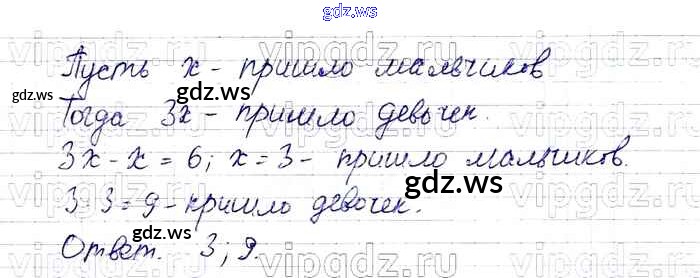 gdz.ws
Пусть x - пришло мальчиков
gdz.ws gdz.ws
Тогда 3x - пришло девочек.
3x - x = 6; x = 3 - пришло мальчиков.
gdz.ws
3·3 = 9 - пришло девочек.
Ответ. 3; 9.
gdz.ws gdz.ws